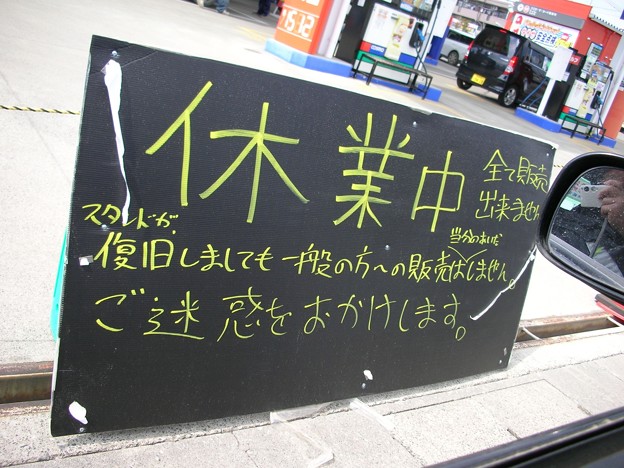 休業中
全て販売
出来ません
スタンドが、
復旧しましても一般の方への販売はしません。
当分のあいだ
ご迷惑をおかけします。
15.12